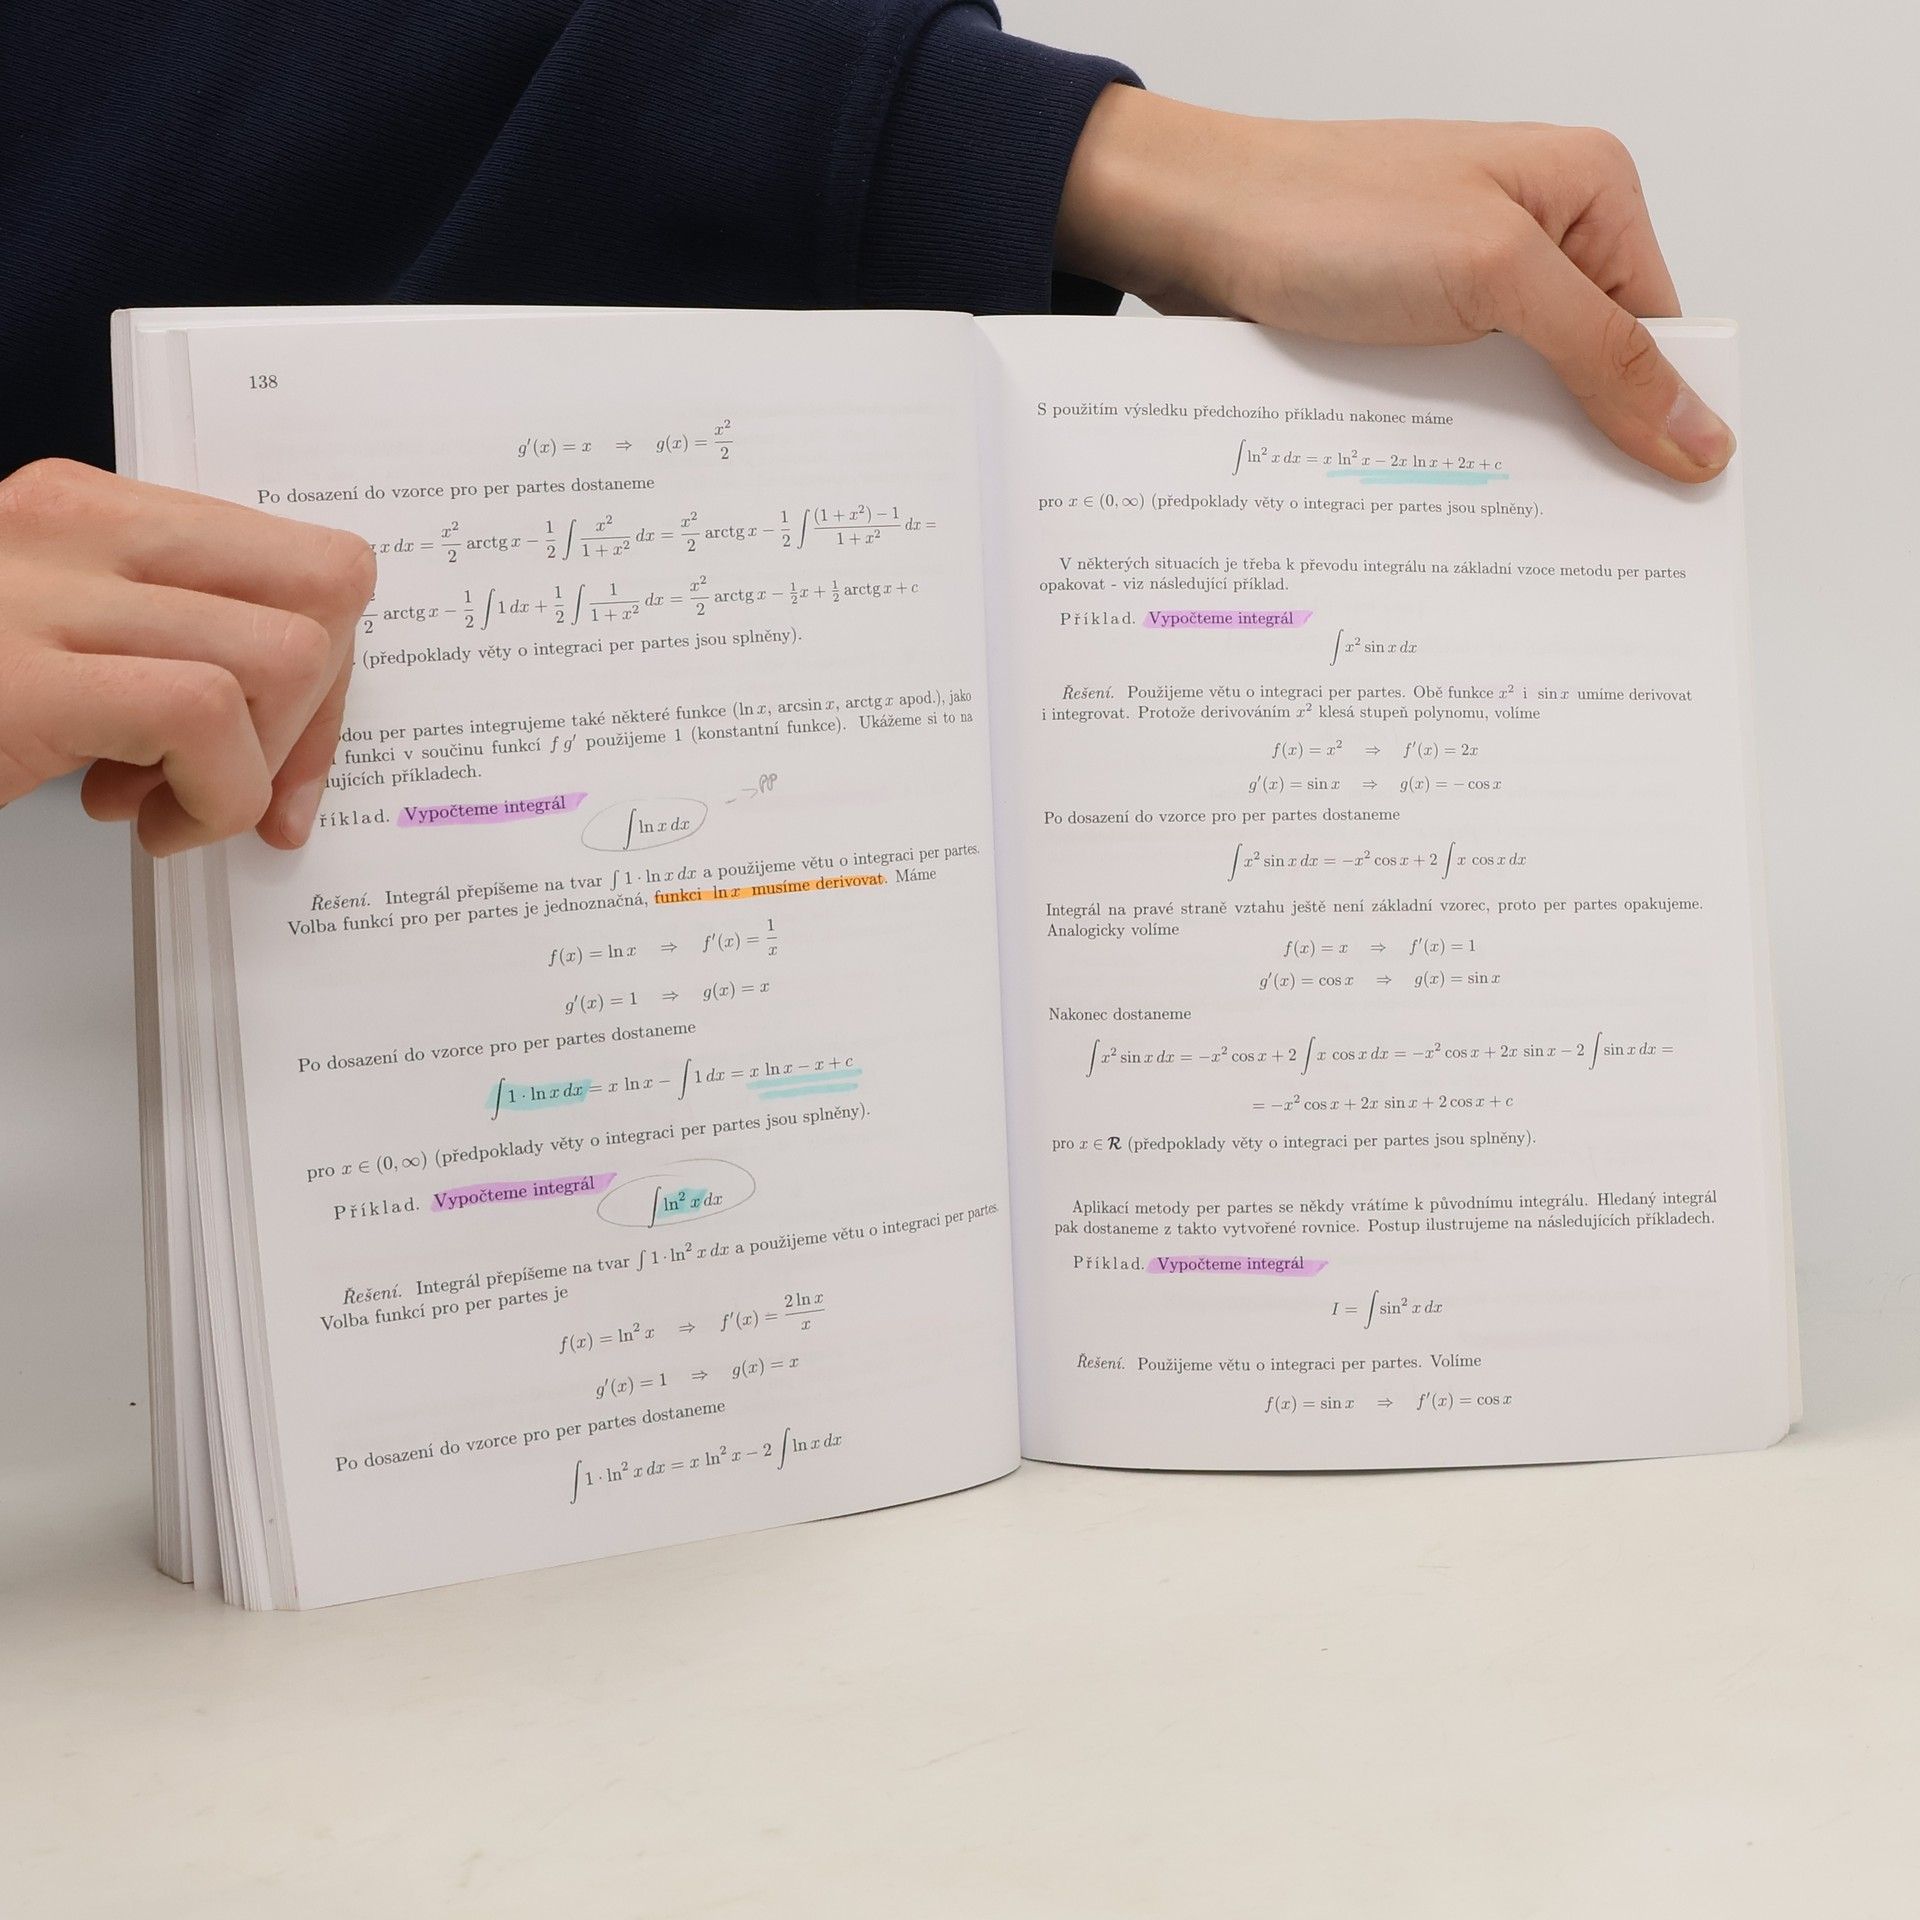 138
g′(x) = x ⇒ g(x) = x²/2
Po dosazení do vzorce pro per partes dostaneme
x dx = x²/2 arctg x − 1/2 ∫ x²/(1 + x²) dx = x²/2 arctg x − 1/2 ∫ ((1 + x²) − 1)/(1 + x²) dx =
2 arctg x − 1/2 ∫ 1 dx + 1/2 ∫ 1/(1 + x²) dx = x²/2 arctg x − ½x + ½ arctg x + c
(předpoklady věty o integraci per partes jsou splněny).
dou per partes integrujeme také některé funkce (ln x, arcsin x, arctg x apod.), jako
funkci v součinu funkcí f g′ použijeme 1 (konstantní funkce). Ukážeme si to na
ujících příkladech.
říklad. Vypočteme integrál
∫ ln x dx → PP
Řešení. Integrál přepíšeme na tvar ∫ 1 · ln x dx a použijeme větu o integraci per partes.
Volba funkcí pro per partes je jednoznačná, funkci ln x musíme derivovat. Máme
f(x) = ln x ⇒ f′(x) = 1/x
g′(x) = 1 ⇒ g(x) = x
Po dosazení do vzorce pro per partes dostaneme
∫ 1 · ln x dx = x ln x − ∫ 1 dx = x ln x − x + c
pro x ∈ (0, ∞) (předpoklady věty o integraci per partes jsou splněny).
Příklad. Vypočteme integrál
∫ ln² x dx
Řešení. Integrál přepíšeme na tvar ∫ 1 · ln² x dx a použijeme větu o integraci per partes.
Volba funkcí pro per partes je
f(x) = ln² x ⇒ f′(x) = 2 ln x/x
g′(x) = 1 ⇒ g(x) = x
Po dosazení do vzorce pro per partes dostaneme
∫ 1 · ln² x dx = x ln² x − 2 ∫ ln x dx
S použitím výsledku předchozího příkladu nakonec máme
∫ ln² x dx = x ln² x − 2x ln x + 2x + c
pro x ∈ (0, ∞) (předpoklady věty o integraci per partes jsou splněny).
V některých situacích je třeba k převodu integrálu na základní vzoce metodu per partes
opakovat - viz následující příklad.
Příklad. Vypočteme integrál
∫ x² sin x dx
Řešení. Použijeme větu o integraci per partes. Obě funkce x² i sin x umíme derivovat
i integrovat. Protože derivováním x² klesá stupeň polynomu, volíme
f(x) = x² ⇒ f′(x) = 2x
g′(x) = sin x ⇒ g(x) = − cos x
Po dosazení do vzorce pro per partes dostaneme
∫ x² sin x dx = −x² cos x + 2 ∫ x cos x dx
Integrál na pravé straně vztahu ještě není základní vzorec, proto per partes opakujeme.
Analogicky volíme
f(x) = x ⇒ f′(x) = 1
g′(x) = cos x ⇒ g(x) = sin x
Nakonec dostaneme
∫ x² sin x dx = −x² cos x + 2 ∫ x cos x dx = −x² cos x + 2x sin x − 2 ∫ sin x dx =
= −x² cos x + 2x sin x + 2 cos x + c
pro x ∈ R (předpoklady věty o integraci per partes jsou splněny).
Aplikací metody per partes se někdy vrátíme k původnímu integrálu. Hledaný integrál
pak dostaneme z takto vytvořené rovnice. Postup ilustrujeme na následujících příkladech.
Příklad. Vypočteme integrál
I = ∫ sin² x dx
Řešení. Použijeme větu o integraci per partes. Volíme
f(x) = sin x ⇒ f′(x) = cos x